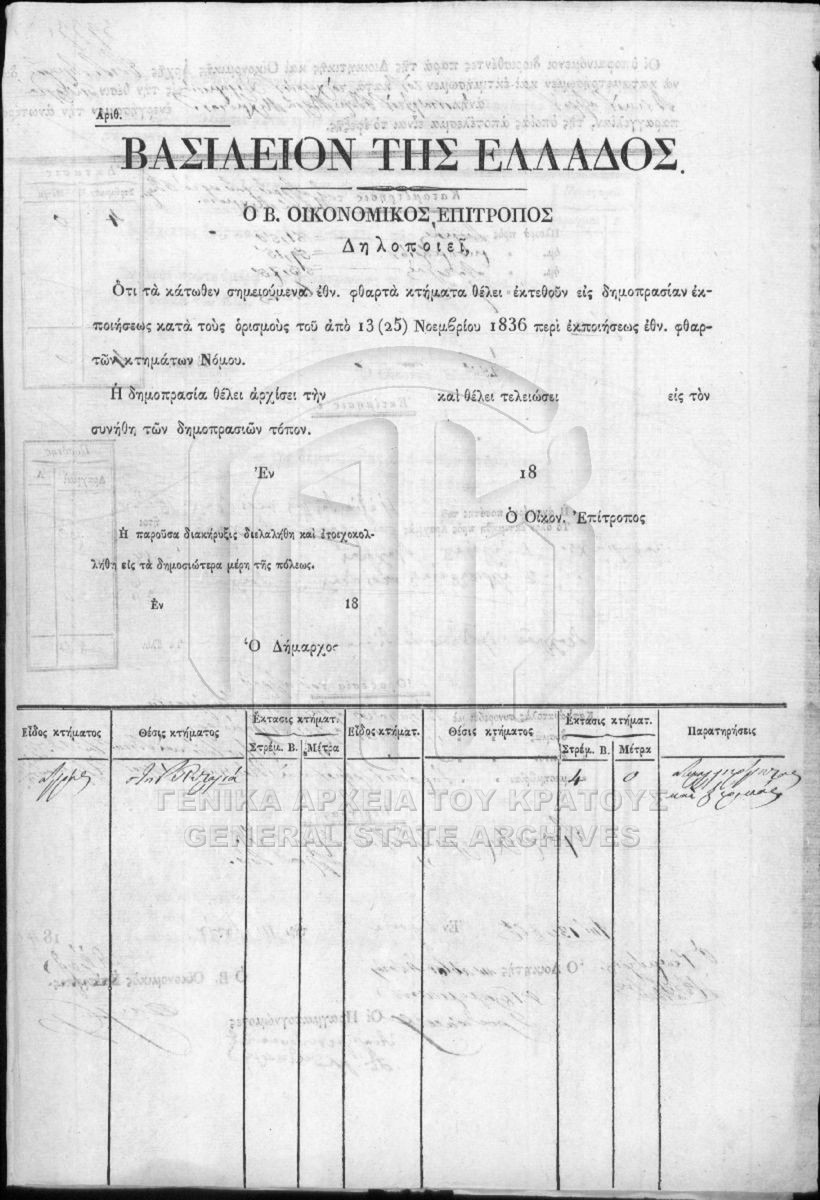 Ἀριθ.
ΒΑΣΙΛΕΙΟΝ ΤΗΣ ΕΛΛΑΔΟΣ.
Ο Β. ΟΙΚΟΝΟΜΙΚΟΣ ΕΠΙΤΡΟΠΟΣ
Δηλοποιεῖ,
Ὅτι τὰ κάτωθεν σημειούμενα ἐθν. φθαρτὰ κτήματα θέλει ἐκτεθοῦν εἰς δημοπρασίαν ἐκ-
ποιήσεως κατὰ τοὺς ὁρισμοὺς τοῦ ἀπὸ 13 (25) Νοεμβρίου 1836 περὶ ἐκποιήσεως ἐθν. φθαρ-
τῶν κτημάτων Νόμου.
Ἡ δημοπρασία θέλει ἀρχίσει τὴν καὶ θέλει τελειώσει εἰς τὸν
συνήθη τῶν δημοπρασιῶν τόπον.
Ἐν 18
Ὁ Οἰκον. Ἐπίτροπος
Ἡ παροῦσα διακήρυξις διελαλήθη καὶ ἐτοιχοκολ-
λήθη εἰς τὰ δημοσιώτερα μέρη τῆς πόλεως.
Ἐν 18
Ὁ Δήμαρχος
Εἶδος κτήματος Θέσις κτήματος Ἔκτασις κτήματ. Εἶδος κτήματ. Θέσις κτήματος Ἔκτασις κτήματ. Παρατηρήσεις
Στρέμ. Β. Μέτρα Στρέμ. Β. Μέτρα
4 0
ΓΕΝΙΚΑ ΑΡΧΕΙΑ ΤΟΥ ΚΡΑΤΟΥΣ
GENERAL STATE ARCHIVES